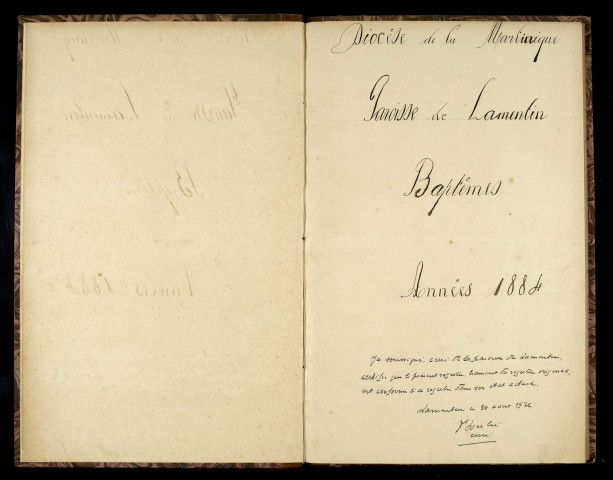 Diocèse de la Martinique
Paroisse de Lamentin
Baptêmes
Années 1884
Je soussigné, curé de la paroisse du Lamentin,
certifie que le présent registre, document du registre original
est conforme à ce registre dans son état actuel.
Lamentin le 20 août
curé